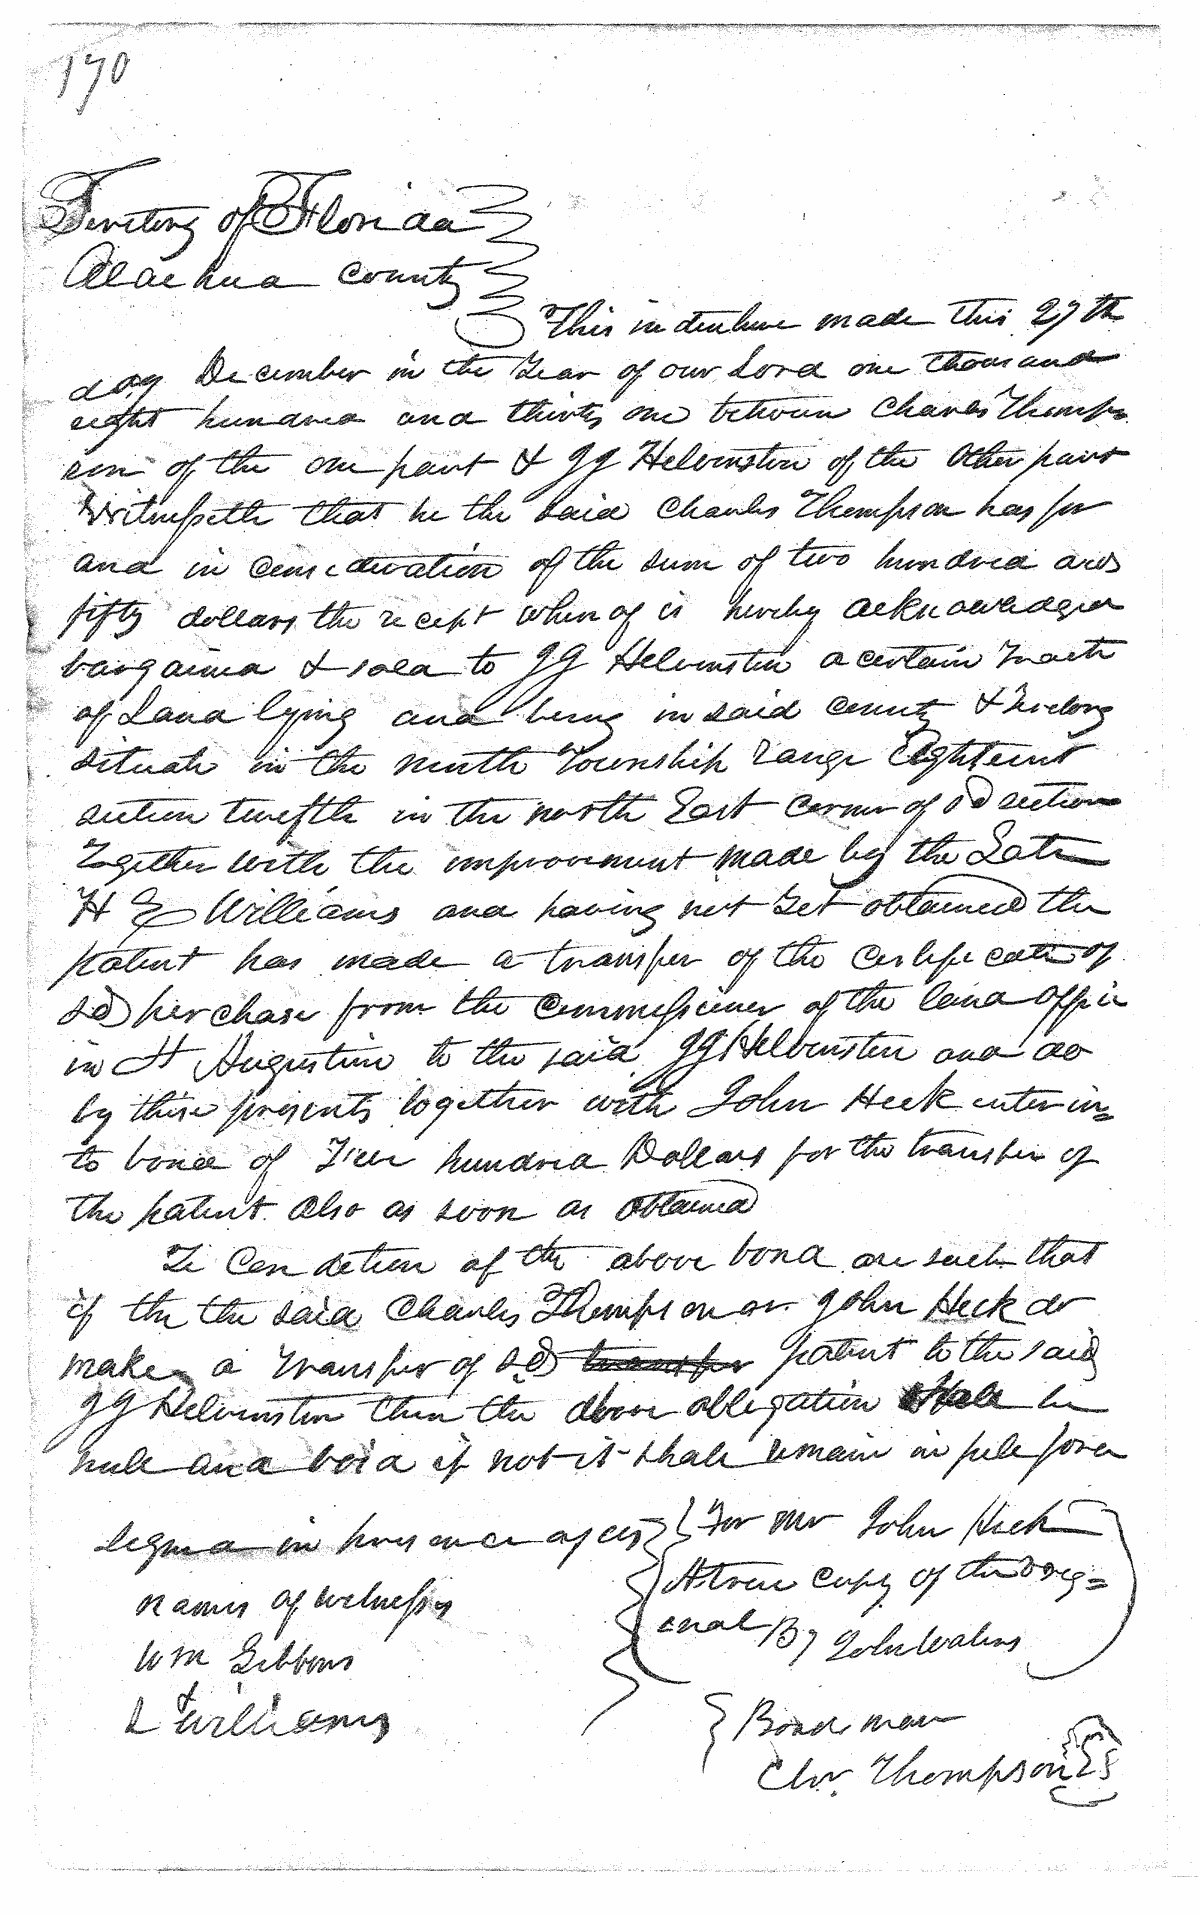 170
Territory of Florida
Alachua County
This indenture made this 27th
day December in the Year of our Lord one thousand
eight hundred and thirty one between Charles Thomp
son of the one part & JG Helvenston of the Other part
Witnesseth that he the said Charles Thompson has for
and in consideration of the sum of two hundred and
fifty dollars the recept whereof is hereby acknowledged
bargained & sold to JG Helvenston a certain tract
of Land lying and being in said county & Teretory
situate in the ninth Township range Eighteent
section twelfth in the north East corner of sd section
Together with the improvement made by the Late
H E Williams and having not yet obtained the
patent has made a transfer of the certificate of
sd perchase from the Commissioner of the land office
in St Augustine to the said JG Helvenston and do
by these presents together with John Heck enter in
to bond of hundred Dollars for the transfer of
the patent also as soon as obtained
Condetion of the above bond are such that
if the the said Charles Thompson or John Heck do
make a Transfer of sd transfer patent to the said
JG Helvenston then the above obligation shall be
null and void if not it shall remain in full force
Signed in presence of us
For me John Heck
A true copy of the Orig=
enal By John
names of witness
Wm Gibbons
&
L Williams
Bondsman
Chs. Thompson LS